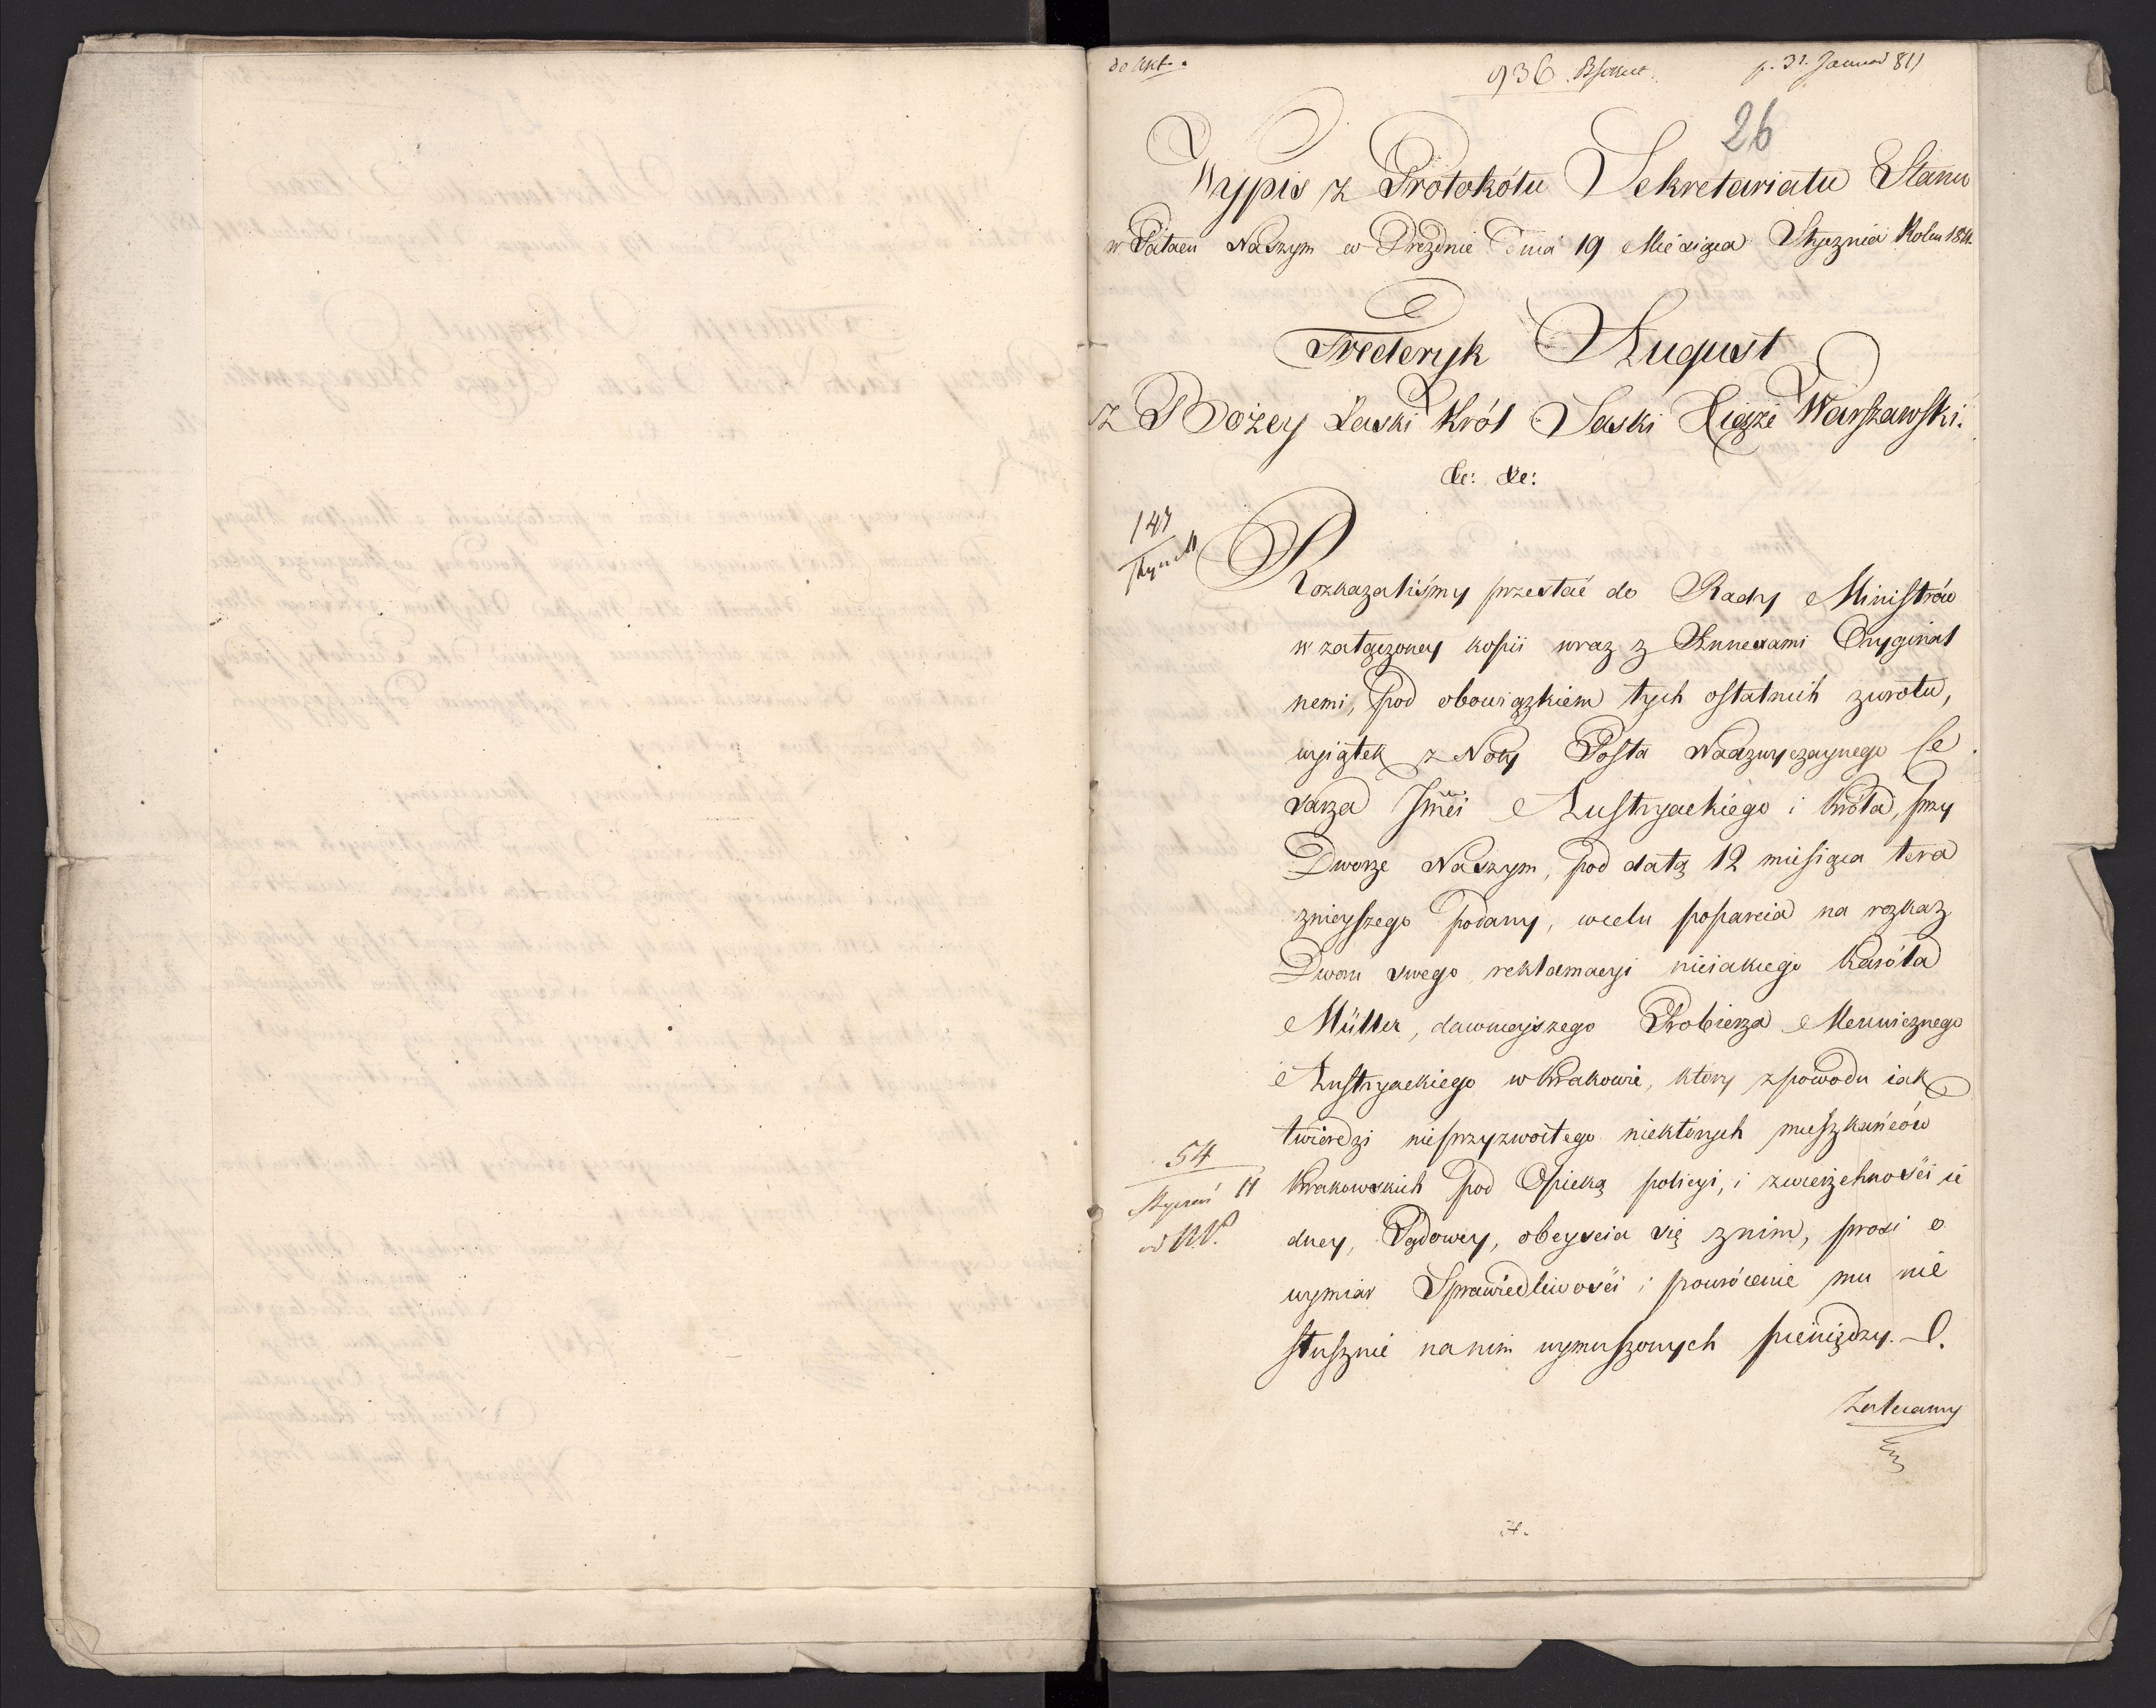 do Akt.
936
p. 31. Januar 811
26
Wypis z Protokółu Sekretariatu Stanu
w Pałacu Naszym w Dreznie Dnia 19 Miesiąca Stycznia Roku 1811.
Frederyk August
z Bożey Łaski Król Saski Xiąże Warszawski.
&c: &c:
147
Rozkazaliśmy przesłać do Rady Ministrów
w załączoney kopii wraz z Annexami Oryginal
nemi, pod obowiązkiem tych ostatnich zwrotu,
wyiątek z Noty Posła Nadzwyczaynego Ce
sarza Jmći Austryackiego i Króla, przy
Dworze Naszym, pod datą 12 miesiąca tera
znieyszego podany, w celu poparcia na rozkaz
Dworu swego reklamacyi nieiakiego Karóla
Müller, dawnieyszego Probierza Mennicznego
Austryackiego w Krakowie, który z powodu iak
twierdzi nieprzyzwoitego niektórych mieszkańców
54
Styczeń 11
od N.P.
Krakowskich pod Opieką policyi, i zwierzchności ie
dney, Sądowey, obeyścia się z nim, prosi o
wymiar Sprawiedliwości i powrócenie mu nie
słusznie na nim wymuszonych pieniędzy.
Zalecamy